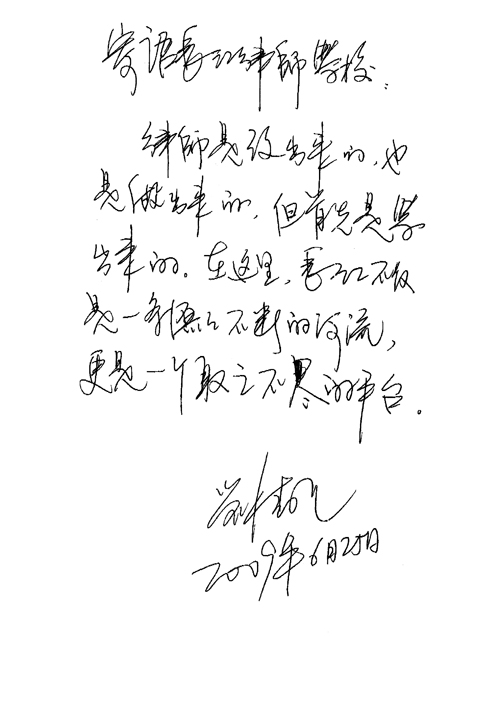 寄语長江律師學校：
律師是说出来的，也
是做出来的，但首先是學
出来的。在这里，長江不仅
是一条源源不断的河流，
更是一个取之不尽的平台。
刘桂明
2009年6月25日